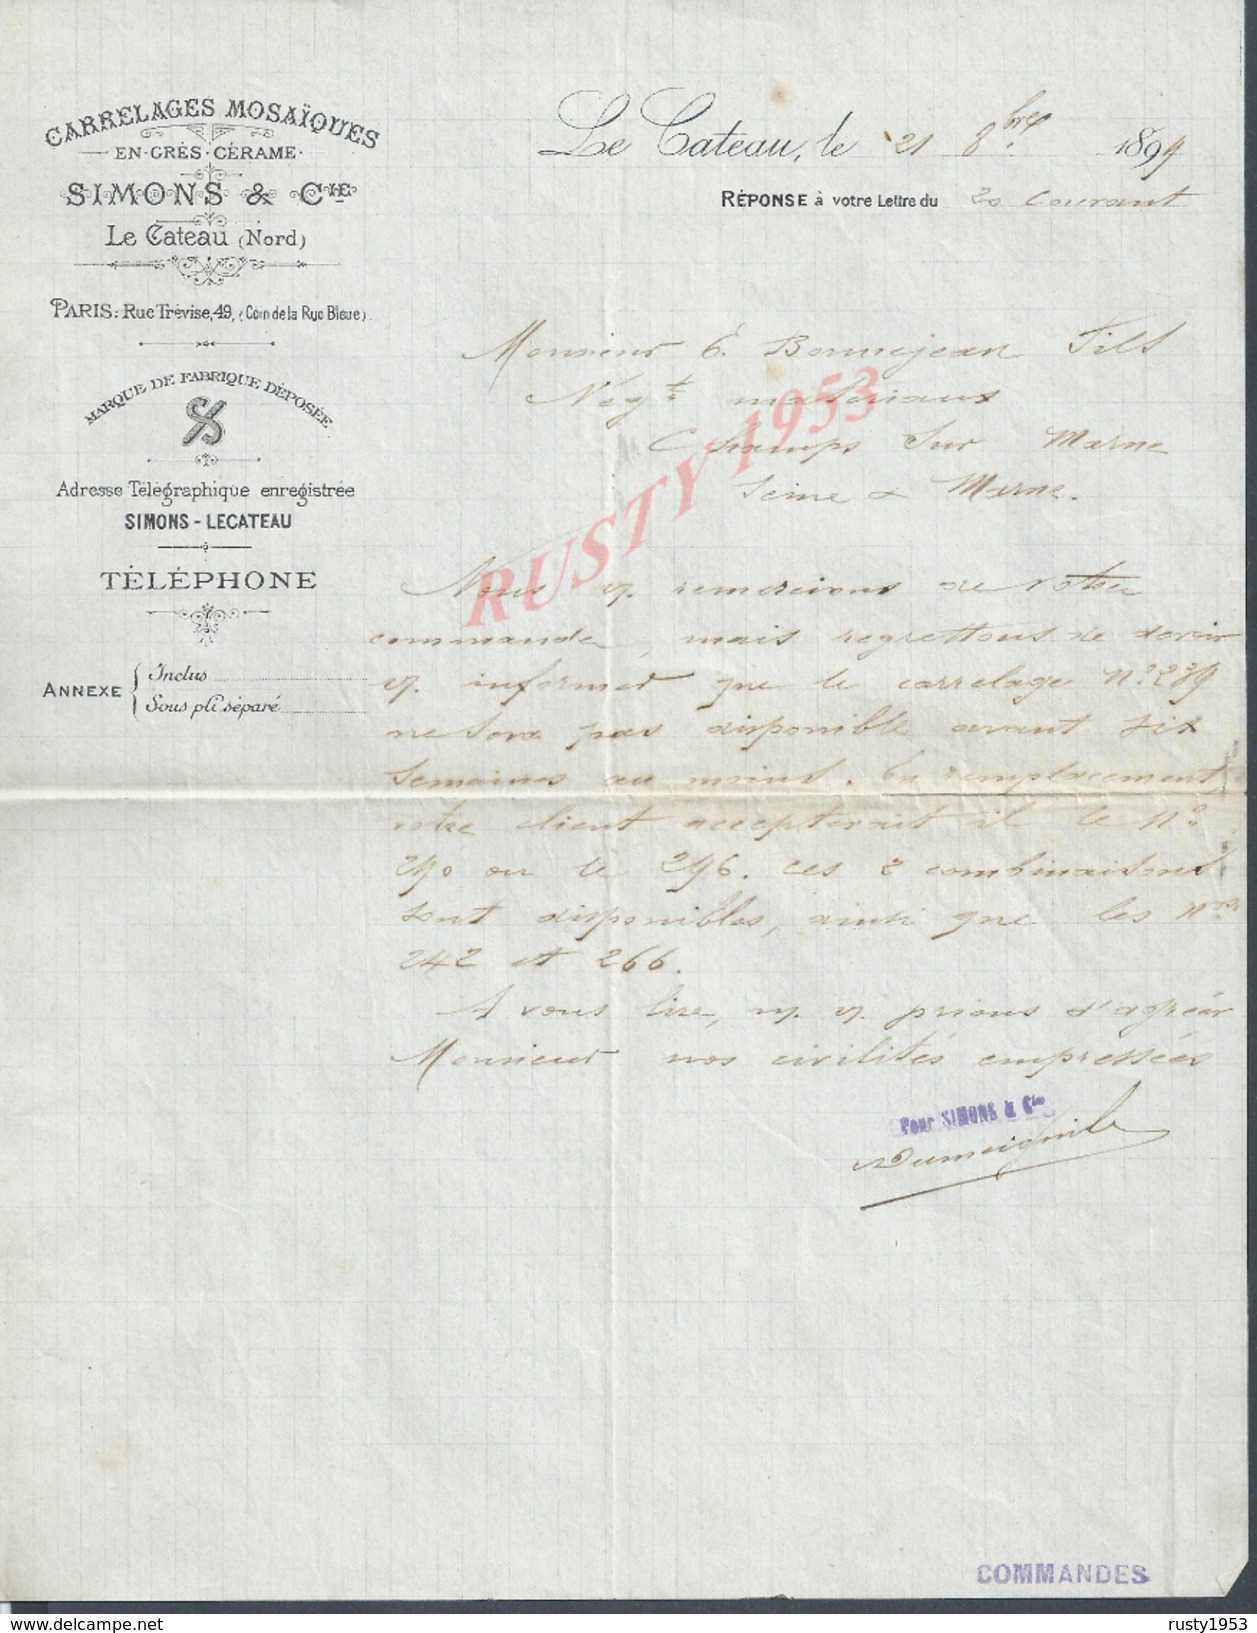 CARRELAGES MOSAÏQUES
EN·GRÈS·CÉRAME·
SIMONS & CIE
Le Cateau (Nord)
PARIS: Rue Trévise, 49, (Coin de la Rue Bleue).
MARQUE DE FABRIQUE DÉPOSÉE
Adresse Télégraphique enregistrée
SIMONS - LECATEAU
TÉLÉPHONE
ANNEXE
Inclus
Sous pli séparé
Le Cateau, le 21 8bre 1894
RÉPONSE à votre Lettre du 20 Courant
Monsieur E. Bonnejean Fils
Négt matériaux
Champs Sur Marne
Seine & Marne.
Nous v. remercions de votre
commande, mais regrettons de devoir
v. informer que le carrelage No 239
ne sera pas disponible avant six
semaines au moins. En remplacement,
votre client accepterait il le No
290 ou le 296. Ces 2 combinaisons
sont disponibles, ainsi que les Nos
242 et 266.
A vous lire, n. v. prions d'agréer
Monsieur nos civilités empressées
Pour SIMONS & Cie
COMMANDES
RUSTY 1953
rusty1953